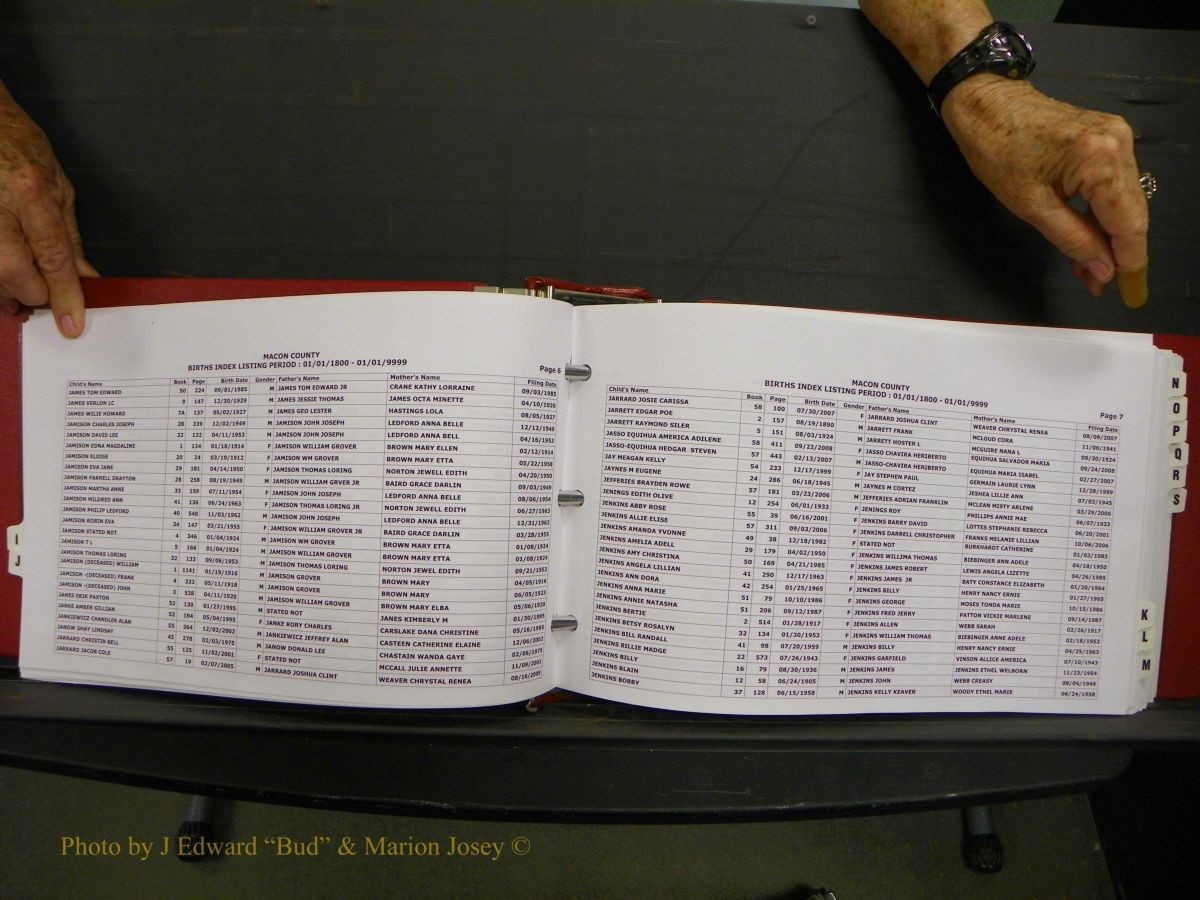 MACON COUNTY
BIRTHS INDEX LISTING PERIOD : 01/01/1800 - 01/01/9999
Page 6
Child's Name Book Page Birth Date Gender Father's Name Mother's Name Filing Date
JAMES TOM EDWARD 50 224 09/01/1985 M JAMES TOM EDWARD JR CRANE KATHY LORRAINE 09/03/1985
JAMES VERLON LC 9 147 12/30/1929 M JAMES JESSIE THOMAS JAMES OCTA MINETTE 04/10/1930
JAMES WILIE HOWARD 7A 137 05/02/1927 M JAMES GEO LESTER HASTINGS LOLA 08/05/1927
JAMISON CHARLES JOSEPH 28 339 12/02/1949 M JAMISON JOHN JOSEPH LEDFORD ANNA BELLE 12/12/1949
JAMISON DAVID LEE 32 132 04/11/1953 M JAMISON JOHN JOSEPH LEDFORD ANNA BELL 04/16/1953
JAMISON EDNA MAGDALINE 1 134 01/18/1914 F JAMISON WILLIAM GROVER BROWN MARY ELLEN 02/12/1914
JAMISON ELOISE 20 24 03/19/1912 F JAMISON WM GROVER BROWN MARY ETTA 05/22/1958
JAMISON EVA JANE 29 181 04/14/1950 F JAMISON THOMAS LORING NORTON JEWELL EDITH 04/20/1950
JAMISON FARRELL DRAYTON 28 258 08/19/1949 M JAMISON WILLIAM GRVER JR BAIRD GRACE DARLIN 09/03/1949
JAMISON MARTHA ANNE 33 159 07/11/1954 F JAMISON JOHN JOSEPH LEDFORD ANNA BELLE 08/06/1954
JAMISON MILDRED ANN 41 136 06/24/1963 F JAMISON THOMAS LORING JR NORTON JEWELL EDITH 06/27/1963
JAMISON PHILIP LEDFORD 40 548 11/03/1962 M JAMISON JOHN JOSEPH LEDFORD ANNA BELLE 12/31/1962
JAMISON ROBIN EVA 34 147 03/21/1955 F JAMISON WILLIAM GROVER JR BAIRD GRACE DARLIN 03/28/1955
JAMISON STATED NOT 4 346 01/04/1924 M JAMISON WM GROVER BROWN MARY ETTA 01/08/1924
JAMISON T L 5 166 01/04/1924 M JAMISON WILLIAM GROVER BROWN MARY ETTA 01/08/1924
JAMISON THOMAS LORING 32 133 09/06/1953 M JAMISON THOMAS LORING NORTON JEWEL EDITH 09/21/1953
JAMISON (DECEASED) WILLIAM 1 1141 01/19/1916 M JAMISON GROVER BROWN MARY 04/05/1916
JAMISON -(DECEASED) FRANK 4 333 05/11/1918 M JAMISON GROVER BROWN MARY 06/05/1923
JAMISON -(DECEASED) JOHN 3 538 04/11/1920 M JAMISON WILLIAM GROVER BROWN MARY ELBA 05/06/1920
JAMES ERIK PAXTON 52 130 01/27/1995 M STATED NOT JANES KIMBERLY M 01/30/1995
JANKE AMBER GILLIAN 52 194 05/04/1995 F JANKE RORY CHARLES CARSLAKE DANA CHRISTINE 05/16/1995
JANKIEWICZ CHANDLER ALAN 55 364 12/02/2002 M JANKIEWICZ JEFFREY ALAN CASTEEN CATHERINE ELAINE 12/06/2002
JANOW SHAY LINDSAY 45 278 02/03/1975 M JANOW DONALD LEE CHASTAIN WANDA GAYE 02/06/1975
JARRARD CHRISTIN BELL 55 125 11/02/2001 F STATED NOT MCCALL JULIE ANNETTE 11/09/2001
JARRARD JACOB COLE 57 19 02/07/2005 M JARRARD JOSHUA CLINT WEAVER CHRYSTAL RENEA 08/16/2005
I
J
MACON COUNTY
BIRTHS INDEX LISTING PERIOD : 01/01/1800 - 01/01/9999
Page 7
Child's Name Book Page Birth Date Gender Father's Name Mother's Name Filing Date
JARRARD JOSIE CARISSA 58 100 07/30/2007 F JARRARD JOSHUA CLINT WEAVER CHRYSTAL RENEA 08/09/2007
JARRETT EDGAR POE 2 157 08/19/1890 M JARRETT FRANK MCLOUD CORA 11/06/1941
JARRETT RAYMOND SILER 5 151 08/03/1924 M JARRETT HOSTER L MCGUIRE NANA L 09/30/1924
JASSO EQUIHUA AMERICA ADILENE 58 411 09/22/2008 F JASSO CHAVIRA HERIBERTO EQUIHUA SALVADOR MARIA 09/24/2008
JASSO-EQUIHUA HEDGAR STEVEN 57 443 02/13/2007 M JASSO-CHAVIRA HERIBERTO EQUIHUA MARIA ISABEL 02/27/2007
JAY MEAGAN KELLY 54 233 12/17/1999 F JAY STEPHEN PAUL GERMAIN LAURIE LYNN 12/28/1999
JAYNES M EUGENE 24 286 06/18/1945 M JAYNES M CORTEZ JESHEA LILLIE ANN 07/03/1945
JEFFERIES BRAYDEN ROWE 57 181 03/23/2006 M JEFFERIES ADRIAN FRANKLIN MCLEAN MISTY ARLENE 03/29/2006
JENINGS EDITH OLIVE 12 254 06/01/1933 F JENINGS ROY PHILLIPS ANNIE MAE 06/07/1933
JENKINS ABBY ROSE 55 39 06/16/2001 F JENKINS BARRY DAVID LOTTES STEPHANIE REBECCA 06/20/2001
JENKINS ALLIE ELISE 57 311 09/03/2006 F JENKINS DARRELL CHRISTOPHER FRANKS MELANIE LILLIAN 10/06/2006
JENKINS AMANDA YVONNE 49 38 12/18/1982 F STATED NOT BURKHARDT CATHERINE 01/03/1983
JENKINS AMELIA ADELL 29 179 04/02/1950 F JENKINS WILLIMA THOMAS BIEBINGER ANN ADELE 04/18/1950
JENKINS AMY CHRISTINA 50 169 04/21/1985 F JENKINS JAMES ROBERT LEWIS ANGELA LIZETTE 04/26/1985
JENKINS ANGELA LILLIAN 41 290 12/17/1963 F JENKINS JAMES JR BATY CONSTANCE ELIZABETH 01/20/1964
JENKINS ANN DORA 42 254 01/25/1965 F JENKINS BILLY HENRY NANCY ERNIE 01/27/1965
JENKINS ANNA MARIE 51 79 10/10/1986 F JENKINS GEORGE MOSES TONDA MARIE 10/15/1986
JENKINS ANNIE NATASHA 51 206 09/12/1987 F JENKINS FRED JERRY PATTON VICKIE MARLENE 09/14/1987
JENKINS BERTIE 2 514 01/28/1917 F JENKINS ALLEN WEBB SARAH 02/26/1917
JENKINS BETSY ROSALYN 32 134 01/30/1953 F JENKINS WILLIAM THOMAS BIEBINGER ANNE ADELE 02/18/1953
JENKINS BILL RANDALL 41 98 07/20/1959 M JENKINS BILLY HENRY NANCY ERNIE 04/25/1963
JENKINS BILLIE MADGE 22 573 07/26/1943 F JENKINS GARFIELD VINSON ALLICE AMERICA 07/10/1943
JENKINS BILLY 16 79 08/30/1936 M JENKINS JAMES JENKINS ETHEL WELBORN 11/23/1954
JENKINS BLAIN 12 58 06/24/1905 M JENKINS JOHN WEBB CREASY 08/04/1949
JENKINS BOBBY 37 128 06/15/1958 M JENKINS KELLY KEAVER WOODY ETHEL MARIE 06/24/1958
N
O
P
Q
R
S
K
L
M
Photo by J Edward “Bud” & Marion Josey ©